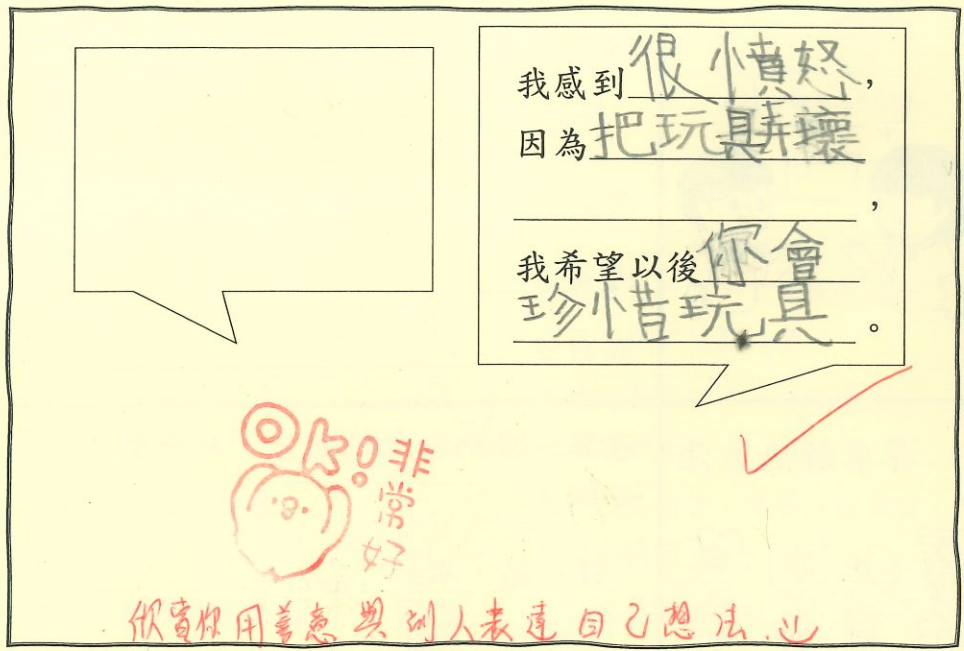 我感到很憤怒，
因為把玩具弄壞
，
我希望以後你會
珍惜玩具。
OK!
非常好
欣賞你用善意與別人表達自己想法